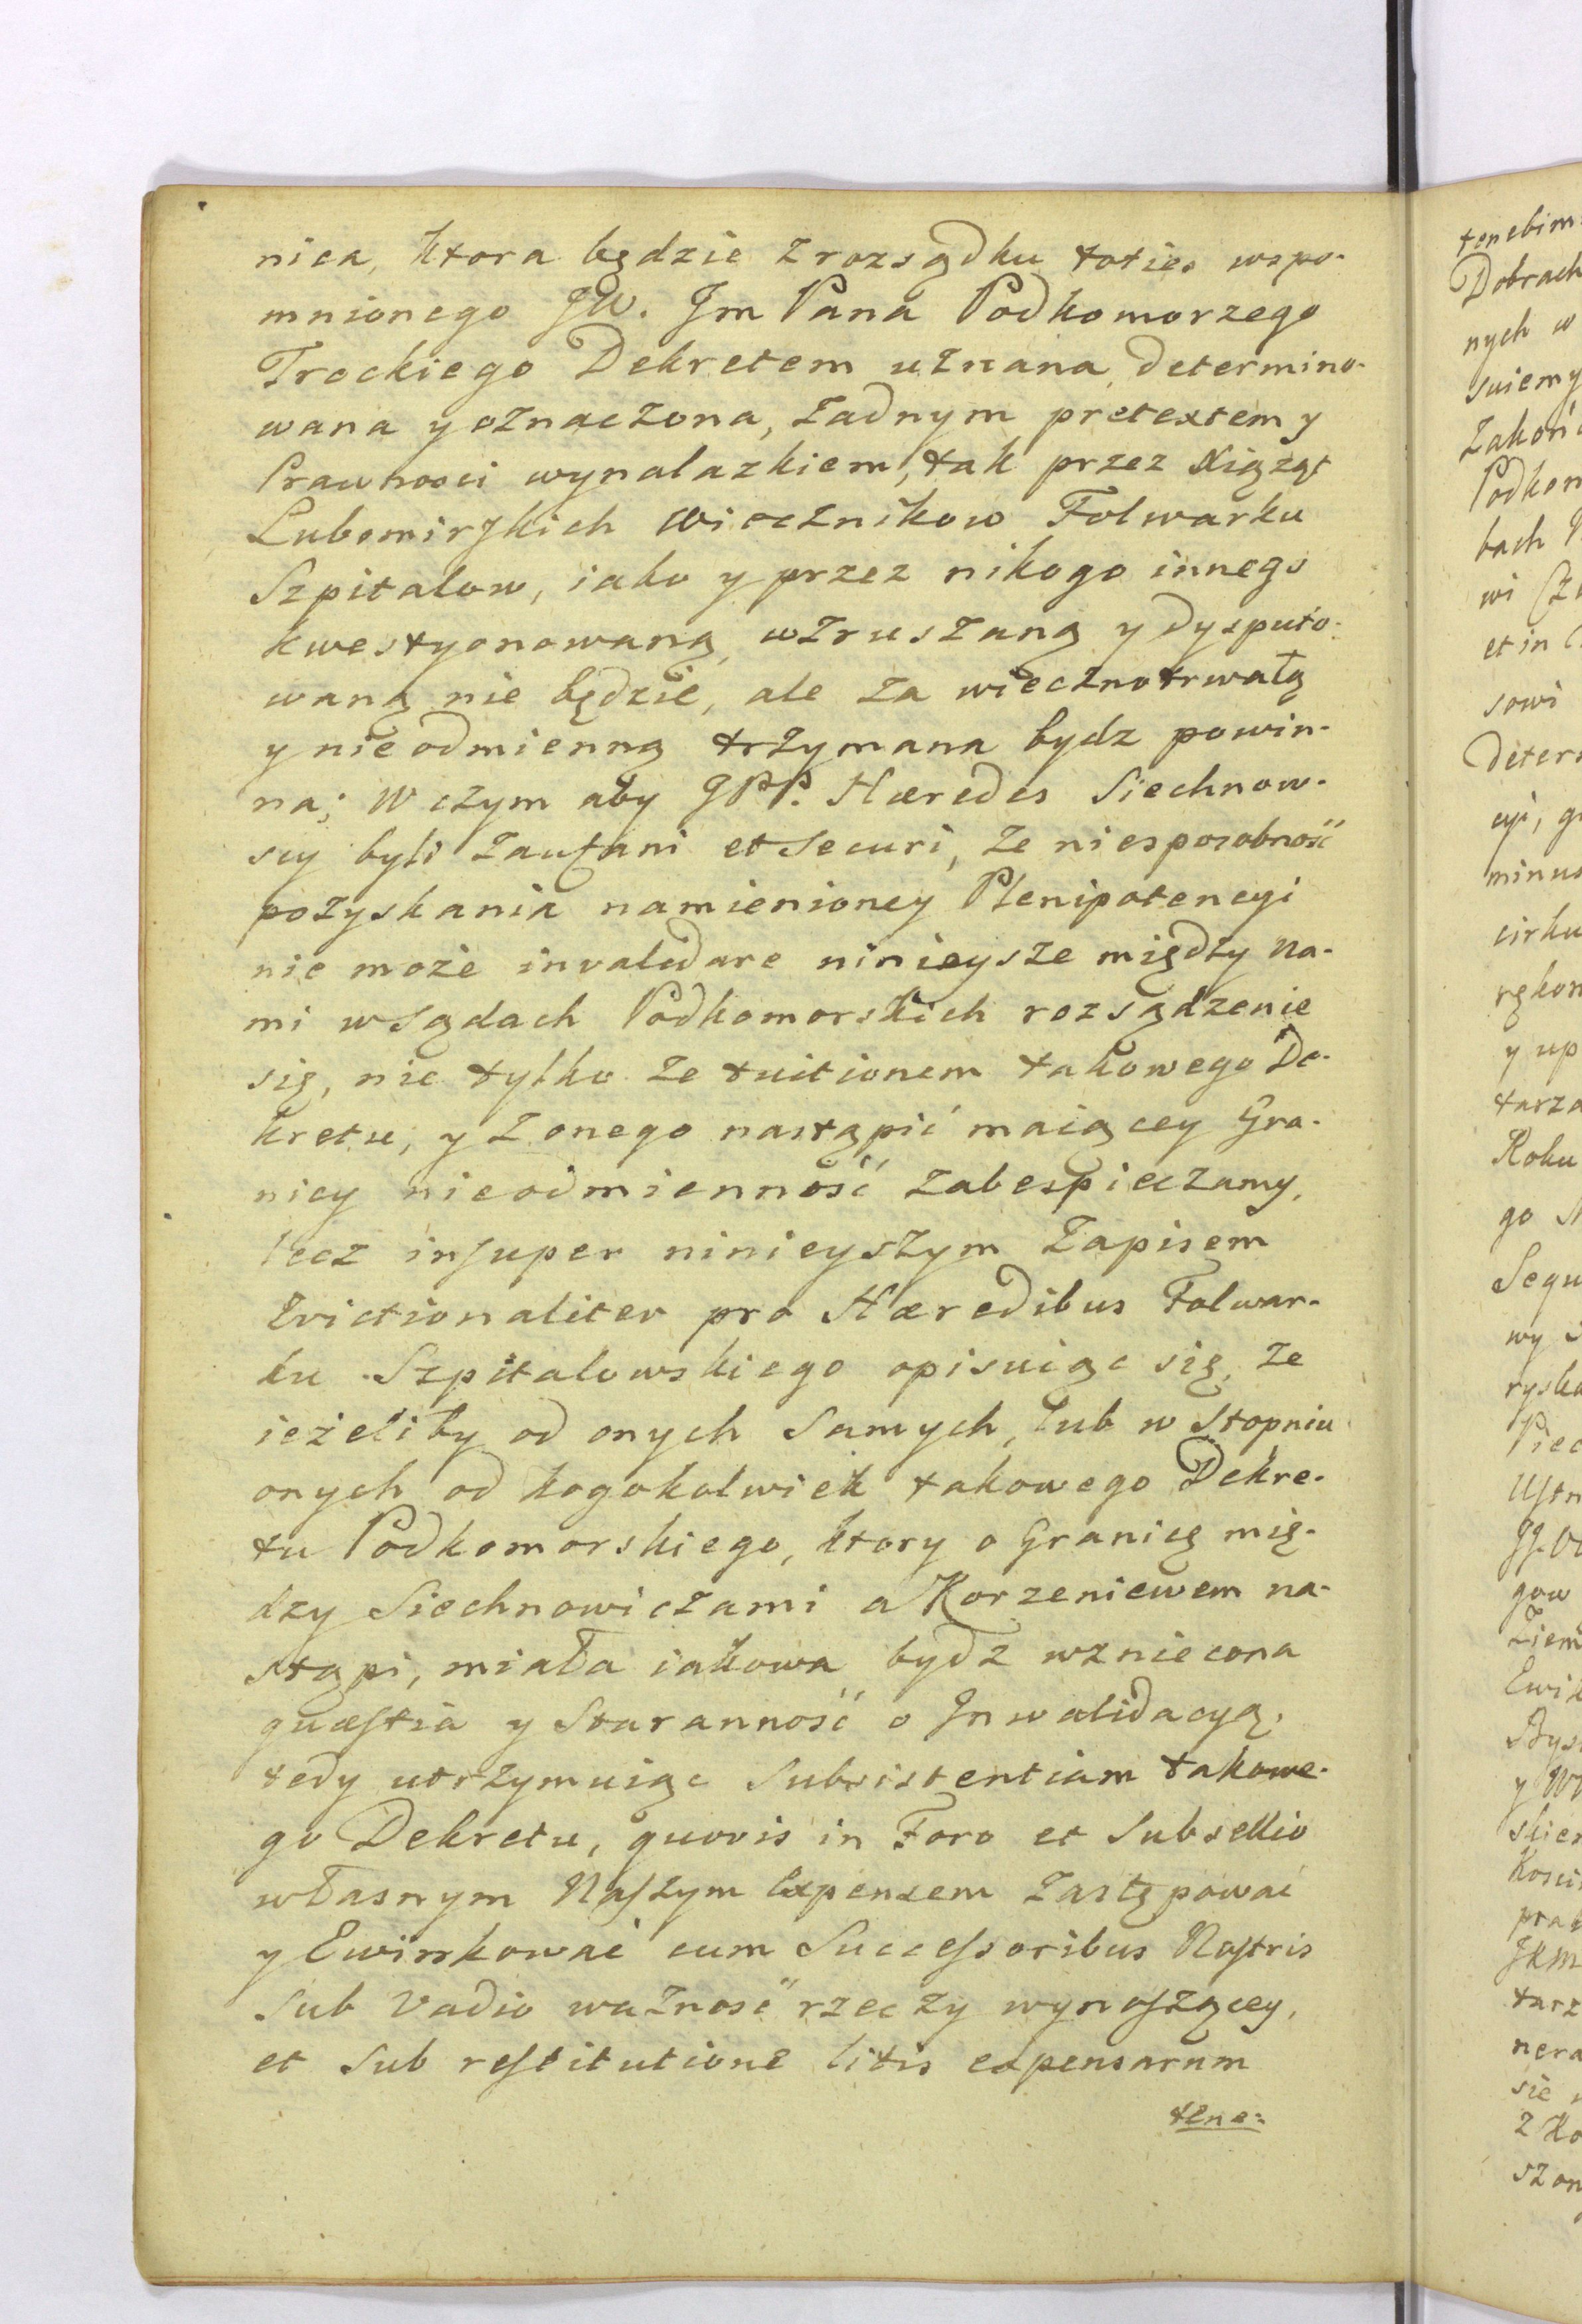 nica, ktora będzie z rozsądku toties wspo-
mnionego JW. Jm Pana Podkomorzego
Trockiego Dekretem uznana, determino-
wana y oznaczona, żadnym pretextem y
Prawności wynalazkiem, tak przez Xiążąt
Lubomirskich wiecznikow Folwarku
Szpitalow, iako y przez nikogo innego
kwestyonowaną, wzruszaną y dysputo-
waną nie będzie, ale za wiecznotrwałą
y nieodmienną trzymana bydz powin-
na; W czym aby JPP. Hæredes Siechnow-
scy byli zaufani et Securi, że niesposobność
pozyskania namienioney Plenipotencyi
nie może invalidare ninieysze między na-
mi w Sądach Podkomorskich rozsądzenie
się, nie tylko że tuitionem takowego De-
kretu, y z onego nastąpić maiącey Gra-
nicy nieodmienność zabespieczamy,
lecz insuper ninieyszym Zapisem
Evictionaliter pro Hæredibus Folwar-
ku Szpitalowskiego opisuiąc się, że
ieżeliby od onych Samych, lub w Stopniu
onych od kogokolwiek takowego Dekre-
tu Podkomorskiego, ktory o Granicę mię-
dzy Siechnowiczami a Korzeniewem na-
stąpi, miała iakowa bydz wzniecona
quæstia y Staranność o Inwalidacyą,
tedy utrzymuiąc Subsistentiam takowe-
go Dekretu, quovis in Foro et Subsellio
własnym Naszym Expensem zastępować
y Ewinkować cum Successoribus Nostris
Sub Vadio ważność rzeczy wynoszącey,
et Sub restitutione litis expensarum
tene:
tenebim
Dobrach
nych w
suiemy
bach
et in
sowi
minus
y up
Roku
Segu